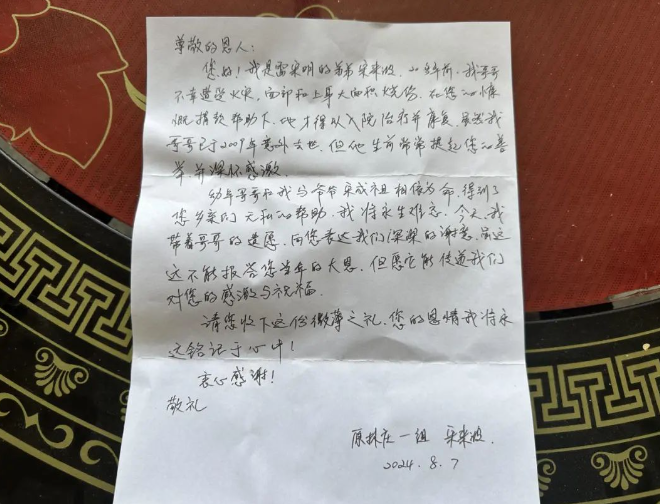 尊敬的恩人:
您好!我是雷荣明的弟弟宋来波,20多年前,我哥哥
不幸遭受火灾,面部和上身大面积烧伤,在您的慷
慨捐款帮助下,他才得以入院治疗并康复,虽然我
哥哥已于2009年意外去世,但他生前常常提起您的善
举并深怀感激.
幼年哥哥和我与爷爷宋成祖相依为命,得到了
您乡亲们无私的帮助,我将永生难忘,今天,我
带着哥哥的遗愿,向您表达我们深深的谢意,虽远
远不能报答您当年的大恩,但愿它能传递我们
对您的感激与祝福.
请您收下这份微薄之礼,您的恩情我将永
远铭记于心中!
衷心感谢!
敬礼
原林庄一组 宋来波.
2024.8.7